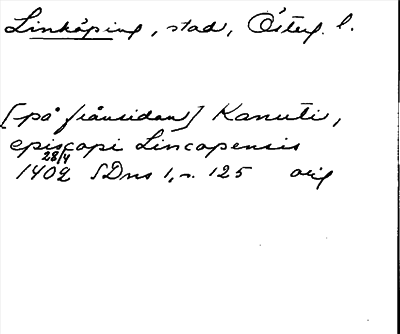 Linköping, stad, Österg. l.
[på frånsidan] Kanuti,
episcopi Lincopensis
28/4
1402 SDns 1, s. 125 orig